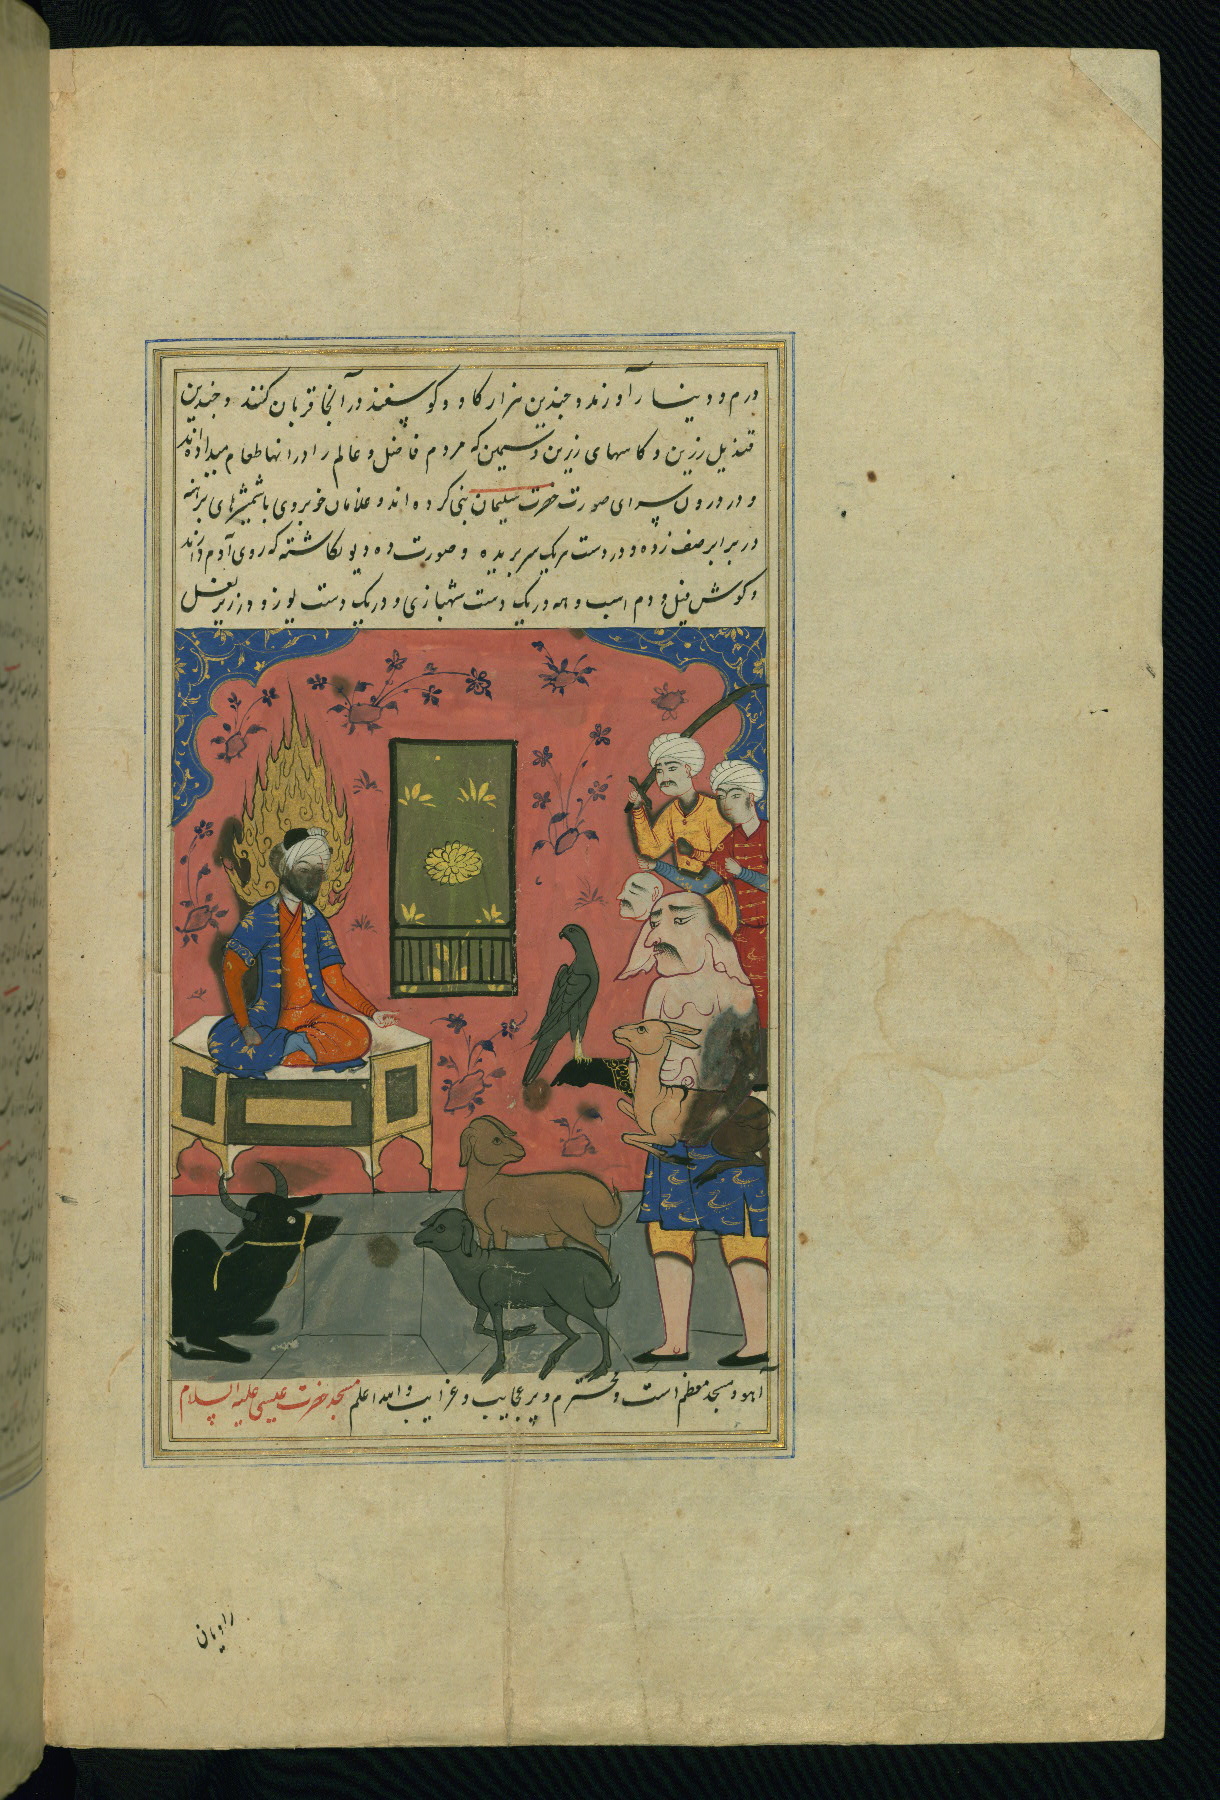 درم و دینار آورند و چندین هزار کاو و کوسفند در آنجا قربان کنند و چندین
قندیل زرین و کاسهای زرین و سیمین که مردم فاضل و عالم را در انها طعام میداده‌اند
و در درون سرای صورت حضرت سلیمان نبی کرده اند و غلامان خوبروی با شمشیرهای برهنه
در برابر صف زده و در دست هریک سر بریده و صورت ده دیو نکاشته که روی آدم دارند
و کوش فیل و دم اسب و همه در یک دست شهبازی و در یک دست یوز و در زیر بغل
آهو و مسجد معظم است و محترم و پر عجایب و غرایب والله اعلم مسجد حضرت عیسی علیه السلام
راویان